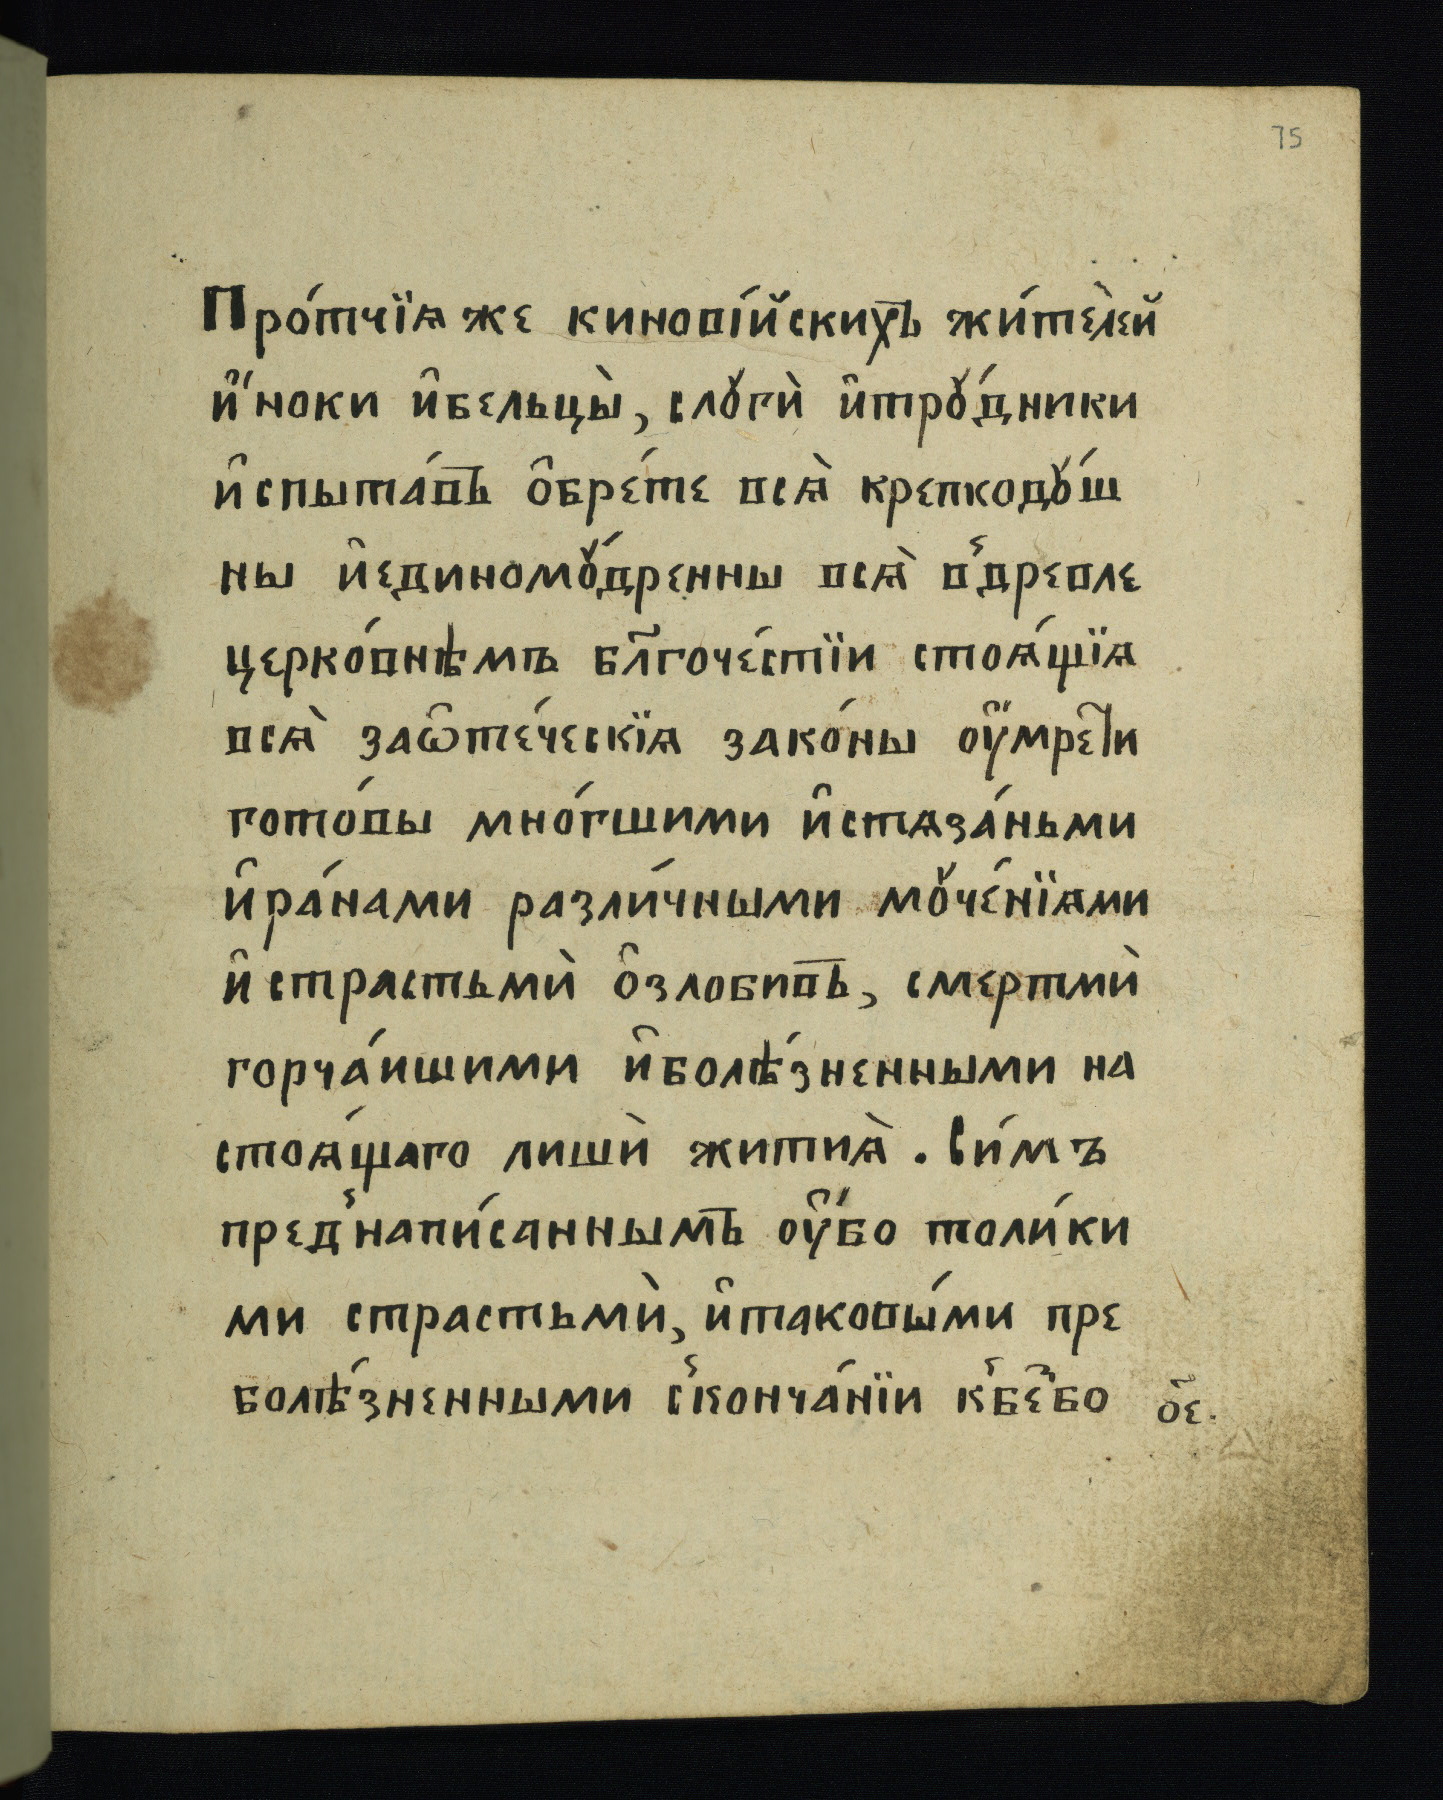 75
Про́тчїѧ же кинові́йскихъ жи́теле́й
и҆́ноки и҆бельцы̀, слꙋгѝ и҆трꙋ́дники
и҆спыта́въ о҆бре́те всѧ̀ крепкодꙋ́ш
ны и҆единомꙋ́дренны всѧ̀ в̾древле
церко́внѣмъ бл҃гоче́стїи стоѧ́щїѧ
всѧ̀ заѿте́ческїѧ зако́ны оу҆мре́ти
гото́вы мно́гшими и҆стѧза́ньми
и҆ра́нами разли́чными мꙋче́нїѧми
и҆страстьмѝ о҆злобивъ, смертмѝ
горча́ишими и҆болѣ́зненными на
стоѧ́щаго лишѝ житиѧ̀. Си́мъ
пред̾напи́саннымъ оу҆́бо толи́ки
ми страстьмѝ, и҆таковы́ми пре
болѣ́зненными с̾конча́нїи к̾бе҆бо
о҃е.